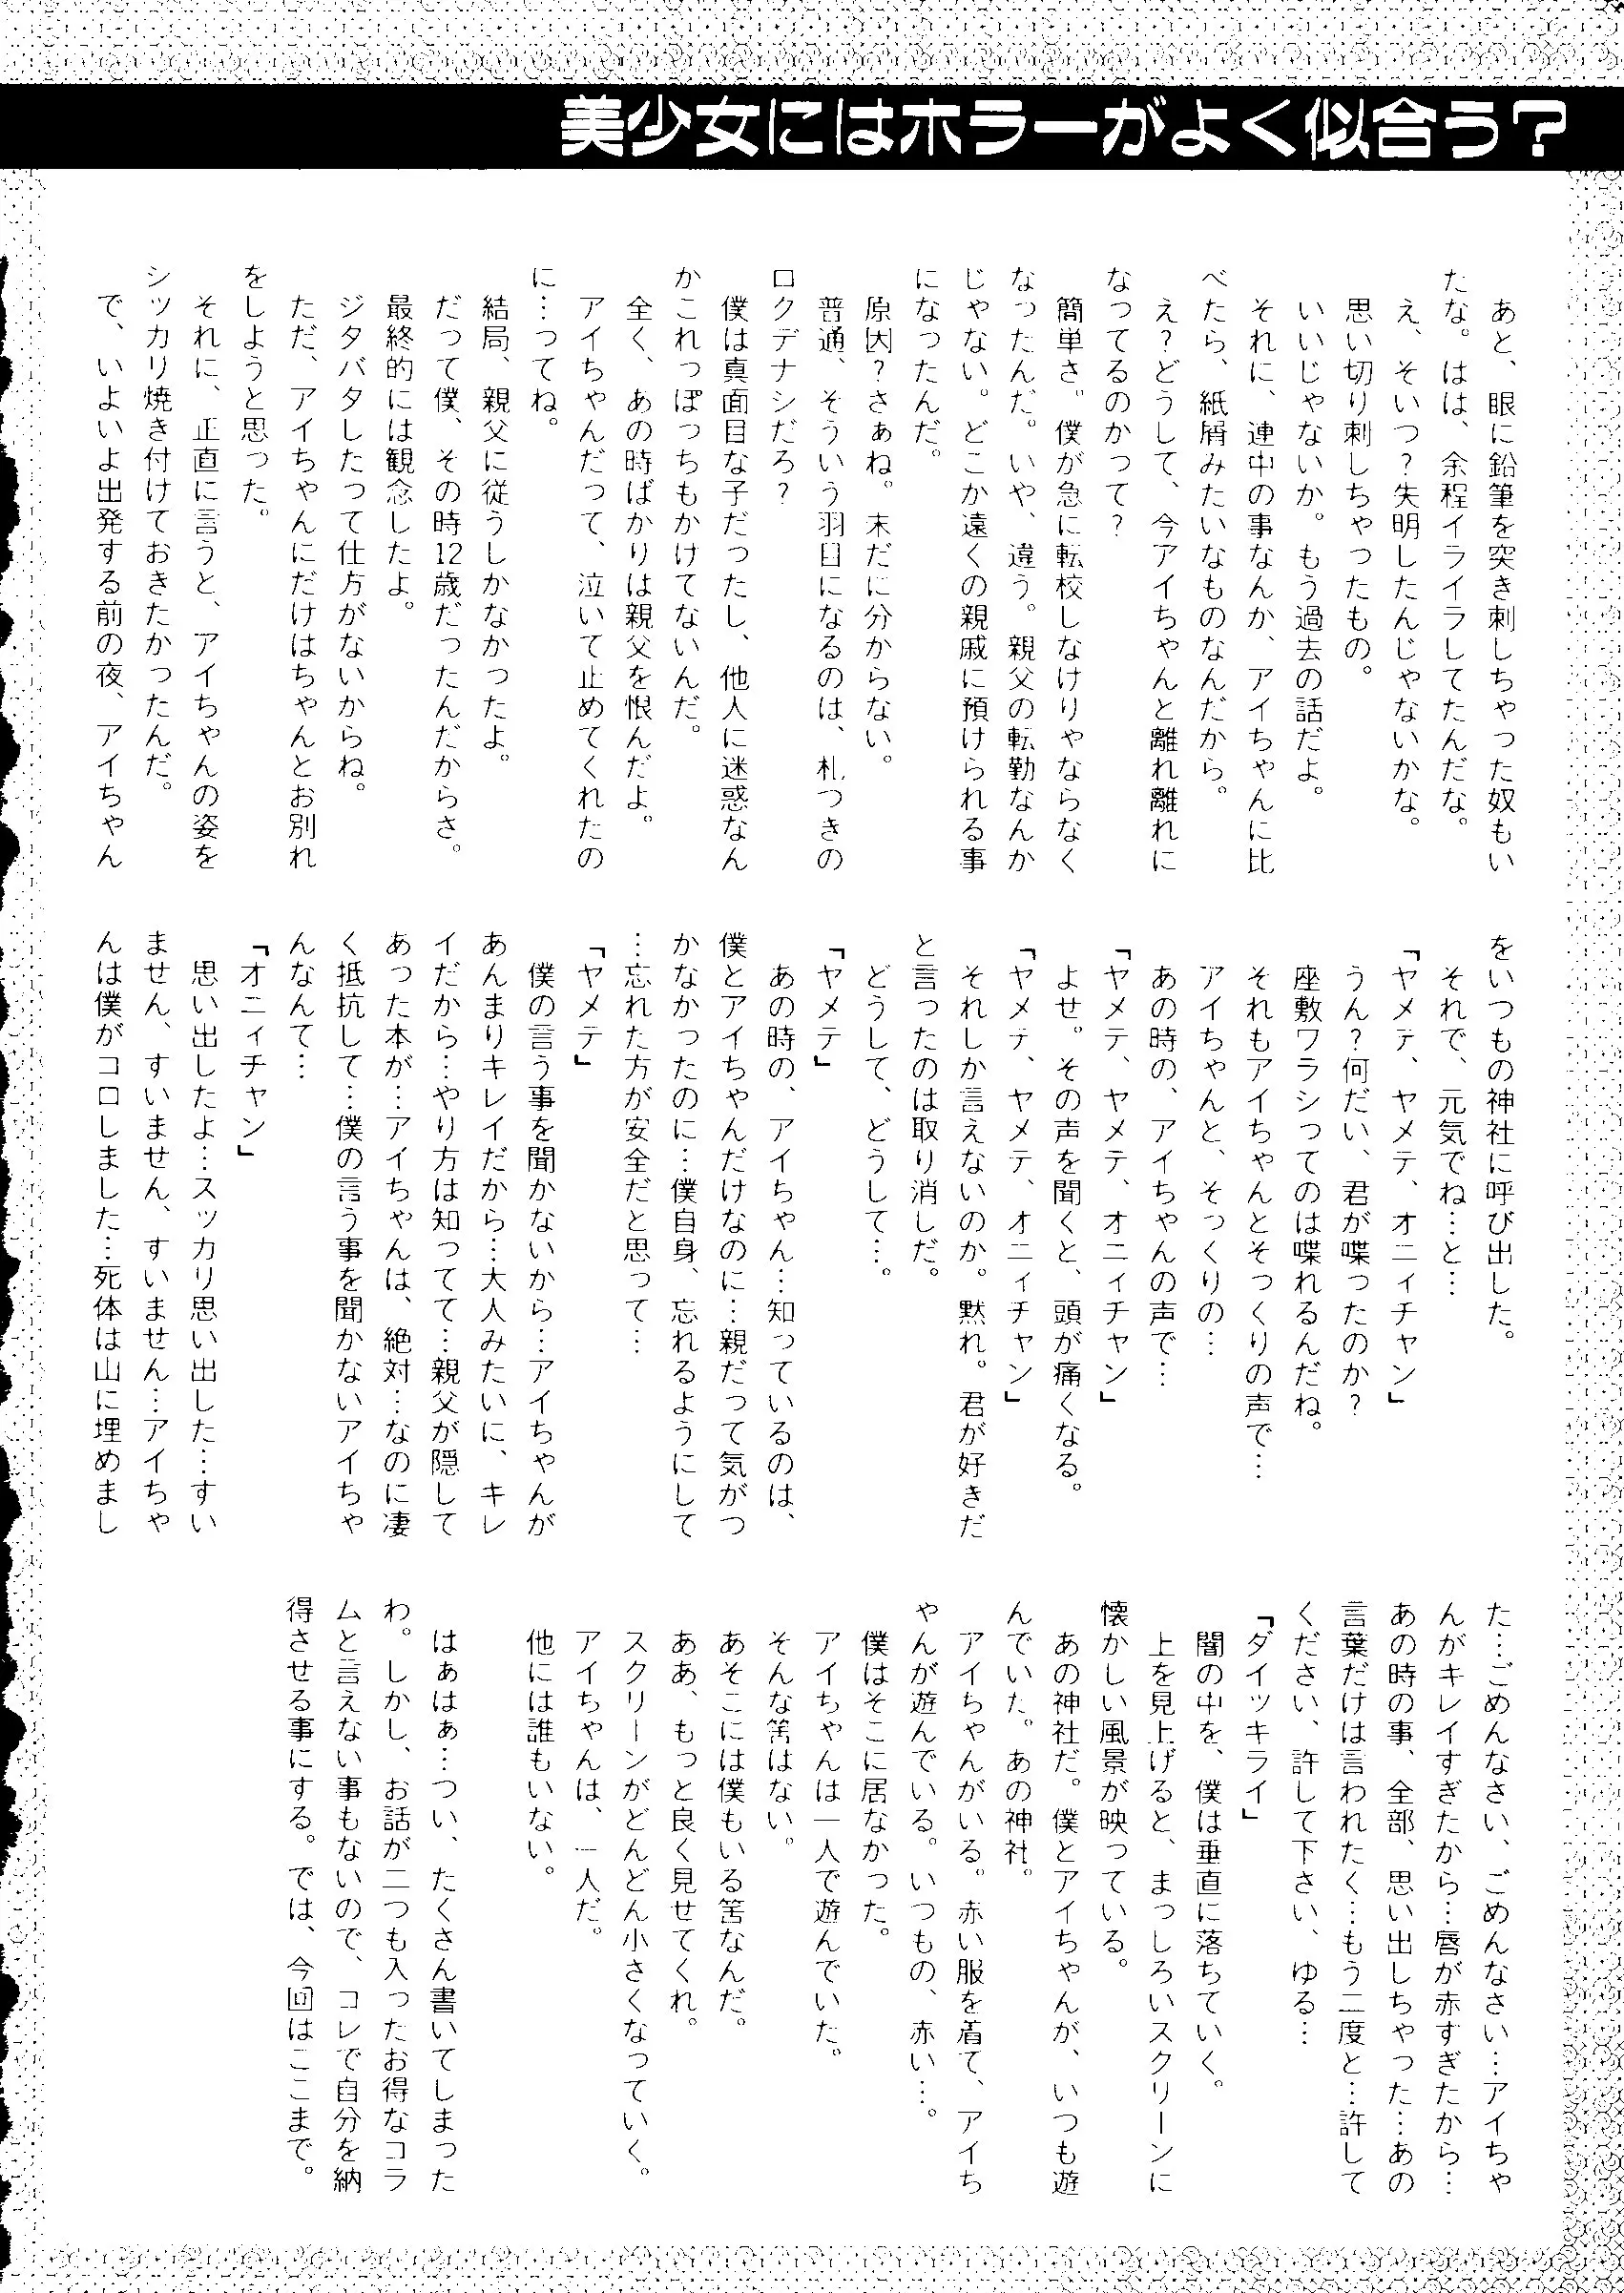 美少女にはホラーがよく似合う?
あと、眼に鉛筆を突き刺しちゃった奴もい
たな。はは、余程イライラしてたんだな。
え、そいつ?失明したんじゃないかな。
思い切り刺しちゃったもの。
いいじゃないか。もう過去の話だよ。
それに、連中の事なんか、アイちゃんに比
べたら、紙屑みたいなものなんだから。
え?どうして、今アイちゃんと離れ離れに
なってるのかって?
簡単さ。僕が急に転校しなけりゃならなく
なったんだ。いや、違う。親父の転勤なんか
じゃない。どこか遠くの親戚に預けられる事
になったんだ。
原因?さぁね。末だに分からない。
普通、そういう羽目になるのは、札つきの
ロクデナシだろ?
僕は真面目な子だったし、他人に迷惑なん
かこれっぽっちもかけてないんだ。
全く、あの時ばかりは親父を恨んだよ。
アイちゃんだって、泣いて止めてくれたの
に…ってね。
結局、親父に従うしかなかったよ。
だって僕、その時12歳だったんだからさ。
最終的には観念したよ。
ジタバタしたって仕方がないからね。
ただ、アイちゃんにだけはちゃんとお別れ
をしようと思った。
それに、正直に言うと、アイちゃんの姿を
シッカリ焼き付けておきたかったんだ。
で、いよいよ出発する前の夜、アイちゃん
をいつもの神社に呼び出した。
それで、元気でね…と…
「ヤメテ、ヤメテ、オニィチャン」
うん?何だい、君が喋ったのか?
座敷ワラシってのは喋れるんだね。
それもアイちゃんとそっくりの声で…
アイちゃんと、そっくりの…
あの時の、アイちゃんの声で…
「ヤメテ、ヤメテ、オニィチャン」
よせ。その声を聞くと、頭が痛くなる。
「ヤメテ、ヤメテ、オニィチャン」
それしか言えないのか。黙れ。君が好きだ
と言ったのは取り消しだ。
どうして、どうして…。
「ヤメテ」
あの時の、アイちゃん…知っているのは、
僕とアイちゃんだけなのに…親だって気がつ
かなかったのに…僕自身、忘れるようにして
…忘れた方が安全だと思って…
「ヤメテ」
僕の言う事を聞かないから…アイちゃんが
あんまりキレイだから…大人みたいに、キレ
イだから…やり方は知ってて…親父が隠して
あった本が…アイちゃんは、絶対…なのに凄
く抵抗して…僕の言う事を聞かないアイちゃ
んなんて…
「オニィチャン」
思い出したよ…スッカリ思い出した…すい
ません、すいません、すいません…アイちゃ
んは僕がコロしました…死体は山に埋めまし
た…ごめんなさい、ごめんなさい…アイちゃ
んがキレイすぎたから…唇が赤すぎたから…
あの時の事、全部、思い出しちゃった…あの
言葉だけは言われたく…もう二度と…許して
ください、許して下さい、ゆる…
「ダイッキライ」
闇の中を、僕は垂直に落ちていく。
上を見上げると、まっしろいスクリーンに
懐かしい風景が映っている。
あの神社だ。僕とアイちゃんが、いつも遊
んでいた。あの神社。
アイちゃんがいる。赤い服を着て、アイち
ゃんが遊んでいる。いつもの、赤い…。
僕はそこに居なかった。
アイちゃんは一人で遊んでいた。
そんな筈はない。
あそこには僕もいる筈なんだ。
ああ、もっと良く見せてくれ。
スクリーンがどんどん小さくなっていく。
アイちゃんは、一人だ。
他には誰もいない。
はぁはぁ…つい、たくさん書いてしまった
わ。しかし、お話が二つも入ったお得なコラ
ムと言えない事もないので、コレで自分を納
得させる事にする。では、今回はここまで。